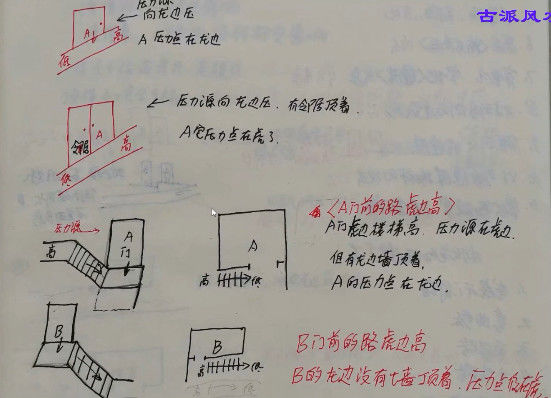 古派风
压力源
向龙边压
A
A压力点在龙边
低
高
压力源向龙边压,有邻居顶着.
A
邻居
高
A宅压力点在虎了.
低
压力源
高
A
门
A
高
低
〈A门前的路虎边高〉
A门虎边楼梯高,压力源在虎边.
但有龙边墙顶着,
A的压力点在龙边.
B
B
高
低
B门前的路虎边高
B的龙边没有墙顶着,压力点